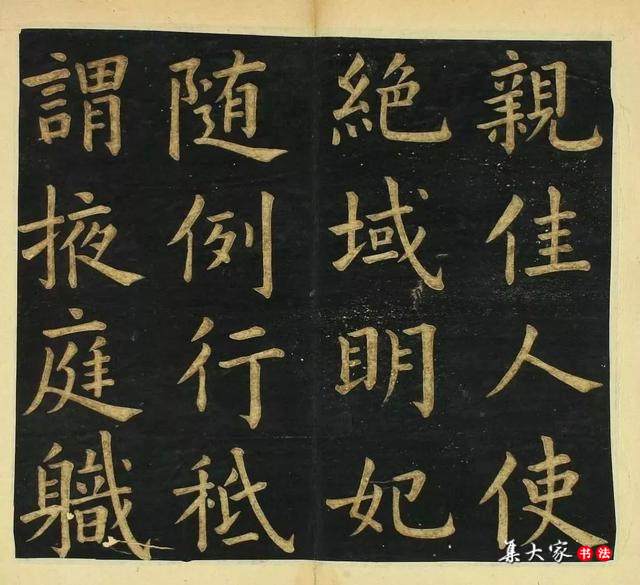 親佳人使
絶域明妃
随例行秪
謂掖庭軄
集大家书法